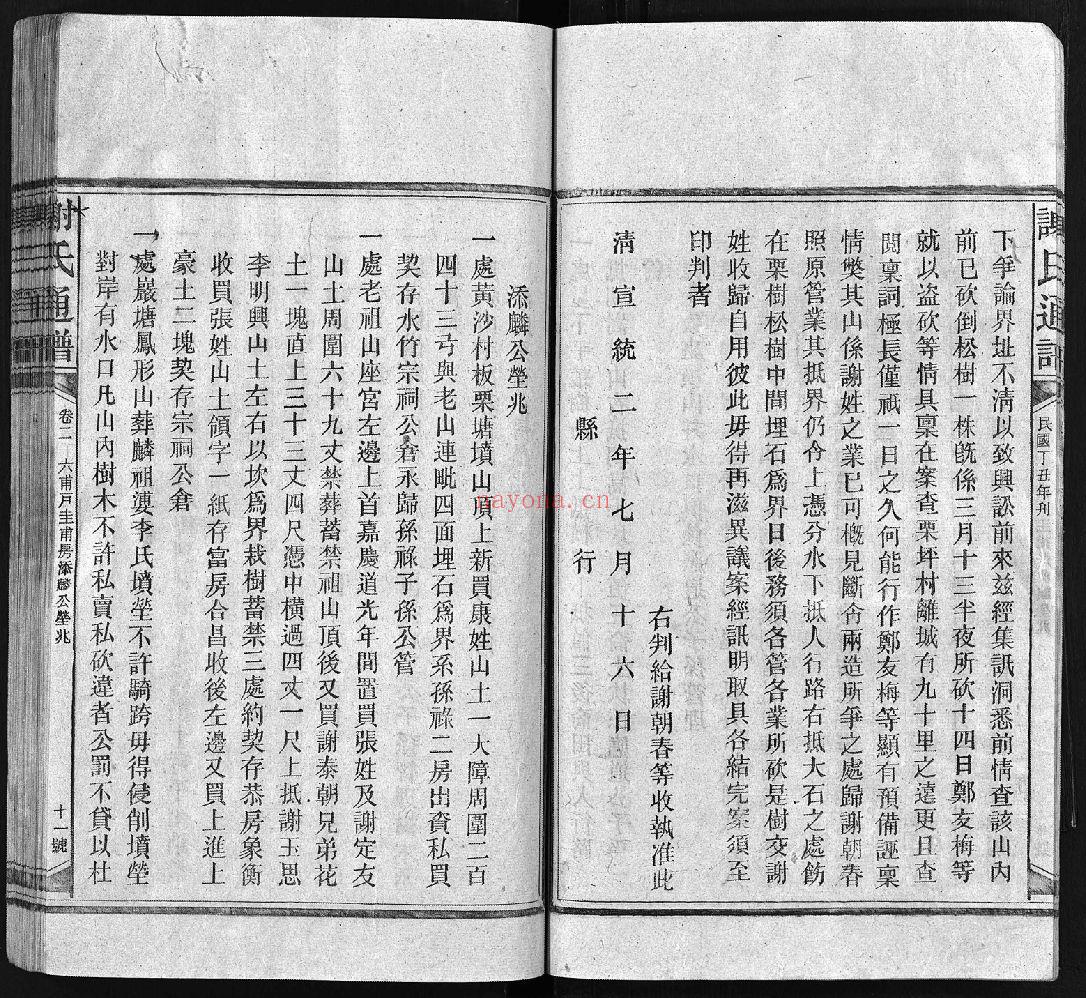 謝氏通譜
民國丁丑年刋
下爭論界址不淸以致興訟前來兹經集訊洞悉前情查該山內
前已砍倒松樹一株旣係三月十三半夜所砍十四日鄭友梅等
就以盗砍等情具禀在案查栗坪村離城有九十里之遠更日查
閱禀詞極長僅祇一日之久何能行作鄭友梅等顯有預備誣禀
情獘其山係謝姓之業已可槪見斷令兩造所爭之處歸謝朝春
照原管業其抵界仍令上憑分水下抵人行路右抵大石之處飭
在栗樹松樹中間埋石爲界日後務須各管各業所砍是樹交謝
姓收歸自用彼此毋得再滋異議案經訊明取具各結完案須至
印判者
右判給謝朝春等收執准此
淸宣統二年七月十六日
縣行
添麟公塋兆
一處黃沙村板栗塘墳山頂上新買康姓山土一大障周圍二百
四十三弓與老山連毗四面埋石爲界系孫祿二房出資私買
契存水竹宗祠公倉永歸孫祿子孫公管
一處老祖山座宮左邊上首嘉慶道光年間置買張姓及謝定友
山土周圍六十九丈禁葬蓄禁祖山頂後又買謝泰朝兄弟花
土一塊直上三十三丈四尺憑中橫過四丈一尺上抵謝玉思
李明興山土左右以坎爲界栽樹蓄禁三處約契存恭房象衡
收買張姓山土領字一紙存富房合昌收後左邊又買上進上
豪土二塊契存宗祠公倉
一處巖塘鳳形山葬麟祖妻李氏墳塋不許騎跨毋得侵削墳塋
對岸有水口凡山內樹木不許私賣私砍違者公罰不貸以杜
謝氏通譜
卷二 六甫戶圭甫房添麟公塋兆
十一號
nayona.cn